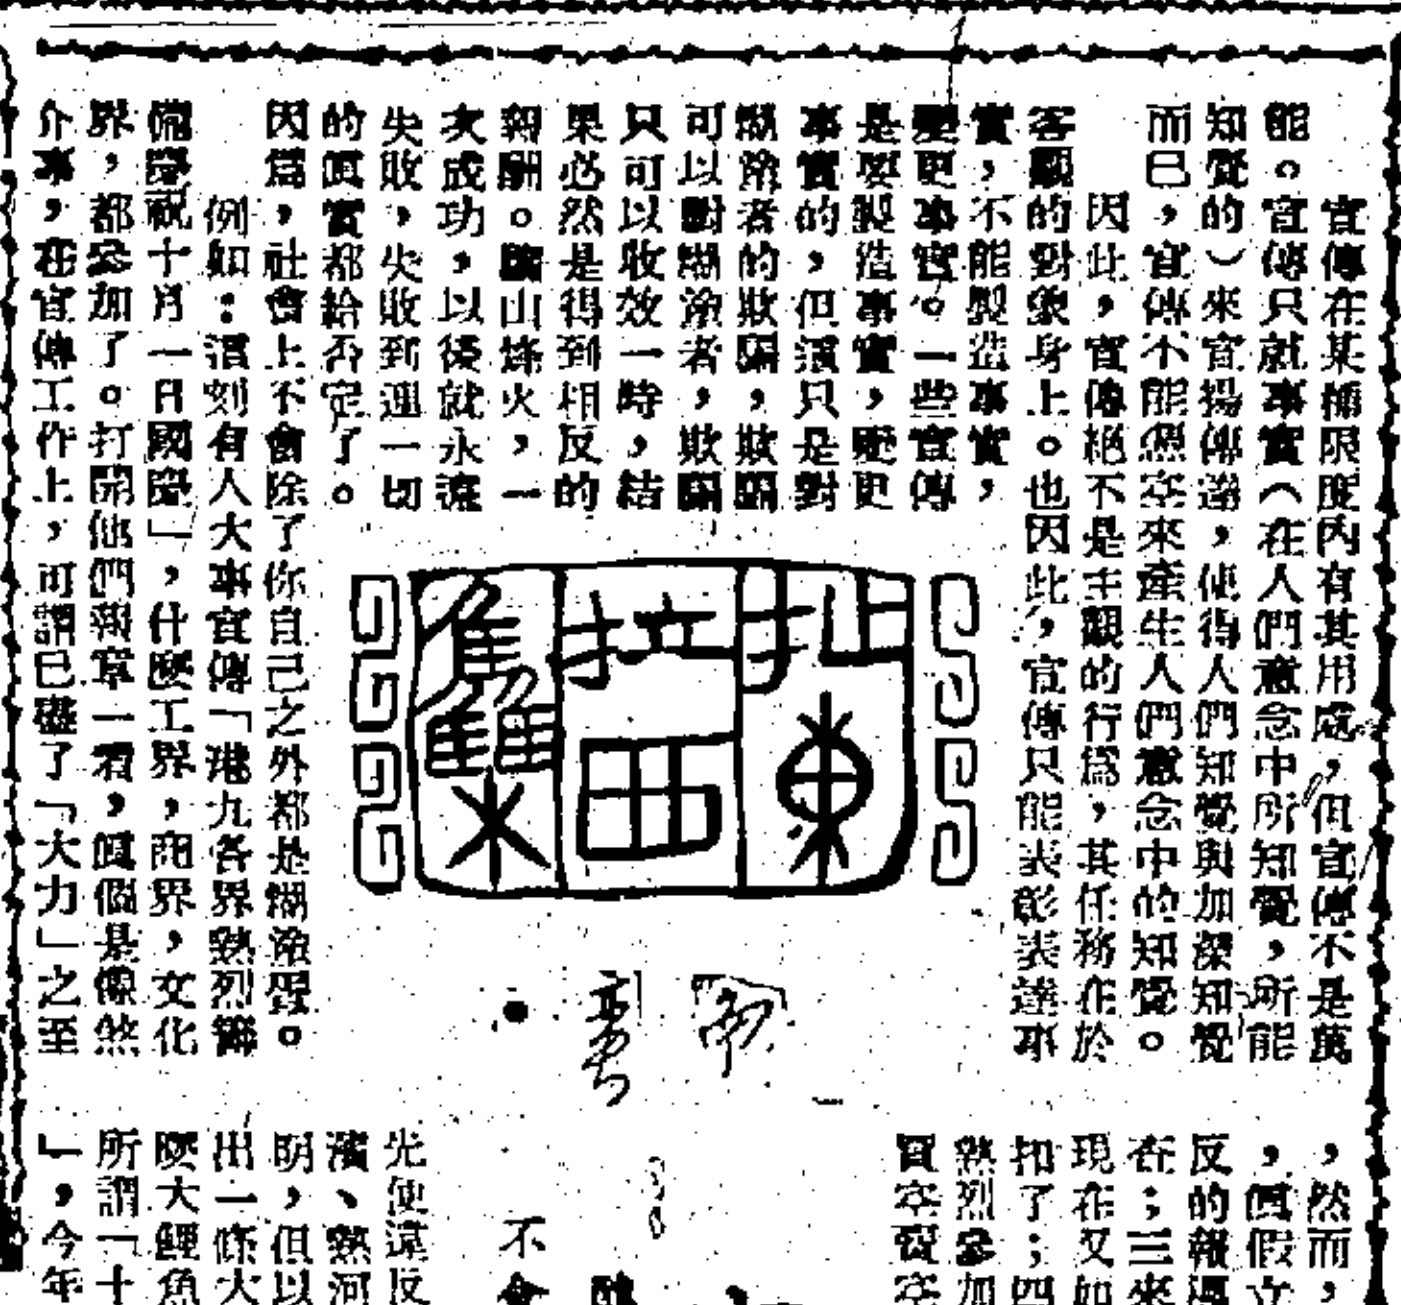 宣傳在某種限度內有其用處,但宣傳不是萬
能。宣傳只就事實(在人們意念中所知覺,所能
知覺的)來宣揚傳達,使得人們知覺與加深知覺
而已,宣傳不能憑空來產生人們意念中的知覺。
因此,宣傳絕不是主觀的行爲,其任務在於
客觀的對象身上。也因此,宣傳只能表彰表達事
實,不能製造事實,
變更事實。一些宣傳
是要製造事實,變更
事實的,但須只是對
糊塗者的欺騙,欺騙
可以對糊塗者,欺騙
只可以收效一時,結
果必然是得到相反的
報酬。驪山烽火,一
次成功,以後就永遠
失敗,失敗到連一切
的眞實都給否定了。
因爲,社會上不會除了你自己之外都是糊塗蛋。
例如:這刻有人大事宣傳「港九各界熱烈籌
備慶祝十月一日國慶」,什麼工界,商界,文化
界,都參加了。打開他們報章一看,眞個是像煞
介事,在宣傳工作上,可謂已盡了「大力」之至
扯東拉西集
,然而,
,眞假立
反的報
在;三來
現在又如
扣了;四
熱烈參加
不會
光使這反
濱、熱河
明,但以
出一條大
慶大鯉魚
所謂「十
」,今年